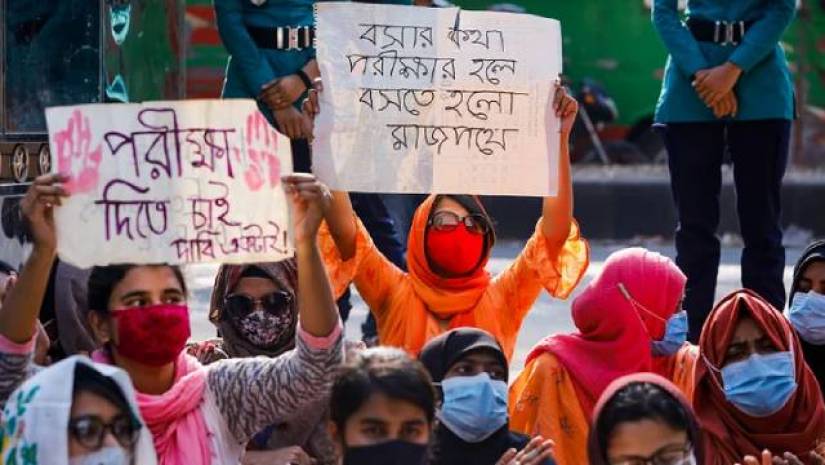 পরীক্ষা
দিতে চাই
দাবি একটাই!
বসার কথা
পরীক্ষার হলে
বসতে হলো
রাজপথে